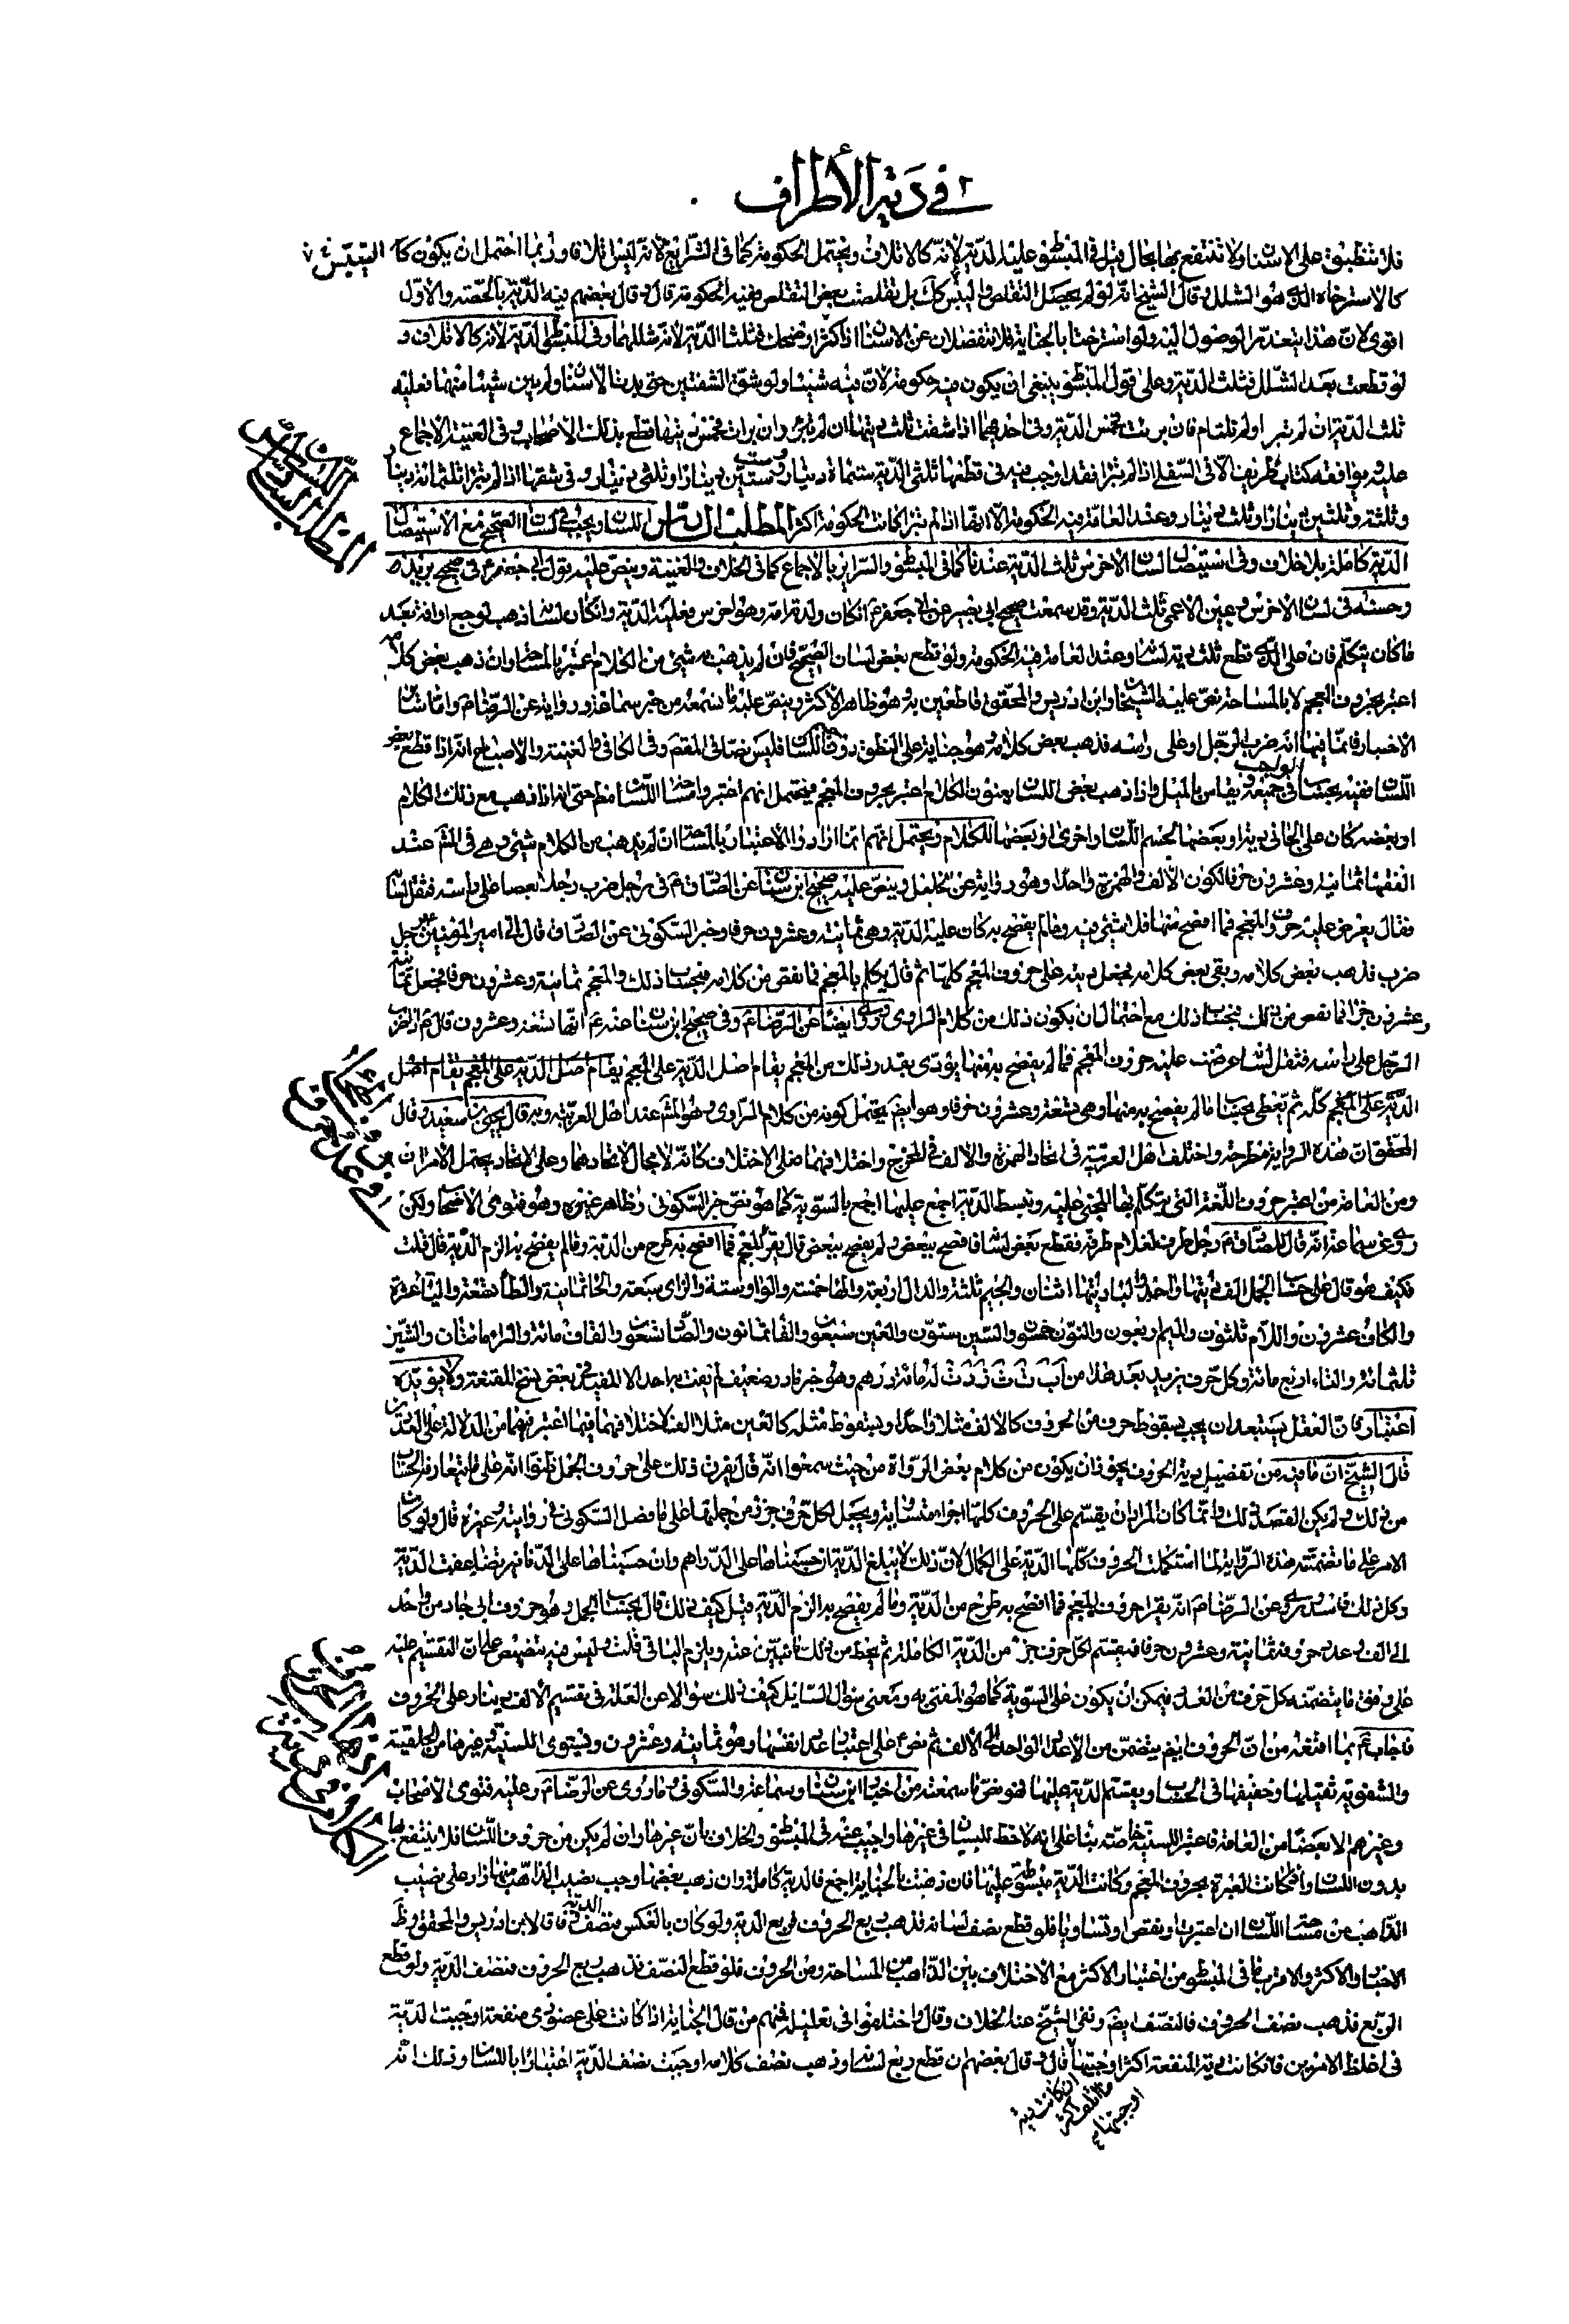 في دية الأطراف
فلا تنطبق على الاسنان ولا تنتفع بها بحال قيل في المبسوط عليه الدية لانه كالاتلاف ويحتمل الحكومة كما في الشرايع لانه ليس اتلافا وربما احتمل ان يكون كا
كالاسترخاء الذي هو الشلل قال الشيخ انه لو لم يحصل التقلص واليبس كل بل تقلصت بعض التقلص ففيه الحكومة قال وقال بعضهم فيه الدية بالحصة والاول
اقوى لان هذا يتعذر الوصول اليه ولو استرختا بالجناية فلا تنفصلان عن الاسنان اذا كشر او ضحك فثلثا الدية لانه شللهما وفي المبسوط الدية لانه كالاتلاف و
لو قطعت بعد الشلل فثلث الدية وعلى قول المبسوط ينبغي ان يكون فيه حكومة لان فيه شينا ولو شق الشفتين حتى بدت الاسنان ولم يبن شيئا منهما فعليه
ثلث الدية ان لم تبرا ولم تلتام فان برئت فخمس الدية وفي احدهما اذا شقت ثلث ديتها ان لم تبرأ وان برات فخمس ديتها قطع بذلك الاصحاب وفي الغنية الاجماع
عليه ويوافقه كتاب ظريف الا في السفلى اذا لم تبرا فقد اوجب فيه في قطعها ثلثي الدية ستمائة دينار وستين دينارا وثلثي دينار وفي شقها اذا لم تبرا ثلثمائة دينار
وثلثة وثلثين دينارا وثلث دينار وعند العامة فيه الحكومة الا انها اذا لم تبرا كانت الحكومة اكثر المطلب السادس اللسان ويجب في لسان الصحيح مع الاستيصال
الدية كاملة بلا خلاف وفي استيصال لسان الاخرس ثلث الدية عندنا كما في المبسوط والسراير بالاجماع كما في الخلاف والغنية وينص عليه قول ابي جعفر ع في صحيح بريد
وحسنه في لسان الاخرس وعين الاعمى ثلث الدية وقد سمعت صحيح ابي بصير عن ابي جعفر ع ان كان ولدته امه وهو اخرس فعليه الدية وان كان لسانه ذهب لوجع او افة بعد
ما كان يتكلم فان على الذي قطع ثلث دية لسانه وعند العامة فيه الحكومة ولو قطع بعض لسان الصحيح فان لم يذهب به شيئ من الكلام اعتبر بالمساحة وان ذهب بعض كلامه
اعتبر بحروف المعجم لا بالمساحة نص عليه الشيخان وابن ادريس والمحقق قاطعين به وهو ظاهر الاكثر وينص عليه ما سنسمعه من خبر سماعة ورواية عن الرضا ع واما سائر
الاخبار فانما فيها انه ضرب الرجل او على راسه فذهب بعض كلامه وهو جناية على النطق دون اللسان فليس نصا في المقصود وفي الكافي والغنية والاصباح انه اذا قطع بعض
اللسان ففيه بحسابه الواجب في جميعه ويقاس بالميل واذا ذهب بعض اللسان يعنون الكلام اعتبر بحروف المعجم فيحتمل انهم اعتبروا مساحة اللسان مط حتى انه اذا ذهب مع ذلك الكلام
او بعضه كان على الجاني دية او بعضها لجسم اللسان واخرى او بعضها للكلام ويحتمل انهم انما ارادوا الاعتبار بالمساحة ان لم يذهب من الكلام شيئ وهي في المشهور عند
الفقهاء ثمانية وعشرون حرفا لكون الالف والهمزة واحدا وهو رواية عن الخليل وينص عليه صحيح ابن سنان عن الصادق ع في رجل ضرب رجلا بعصا على راسه فثقل لسانه
فقال يعرض عليه حروف المعجم فما افصح منها فلا شيئ فيه وما لم يفصح به كان عليه الدية وهي ثمانية وعشرون حرفا وخبر السكوني عن الصادق ع قال اتي امير المؤمنين ع برجل
ضرب فذهب بعض كلامه وبقي بعض كلامه فجعل ديته على حروف المعجم كلها ثم قال تكلم بالمعجم فما نقص من كلامه فبحساب ذلك والمعجم ثمانية وعشرون حرفا فجعل ثمانية
وعشرون جزا فما نقص من ذلك فبحساب ذلك مع احتمال ان يكون ذلك من كلام الراوي وروي ايضا عن الرضا ع وفي صحيح ابن سنان عنه ع انها تسعة وعشرون قال ع اذا ضرب
الرجل على راسه فثقل لسانه عرضت عليه حروف المعجم فما لم يفصح به منها يؤدى بقدر ذلك من المعجم يقام اصل الدية على المعجم يقام اصل الدية على المعجم يقام اصل
الدية على المعجم كله ثم يعطى بحساب ما لم يفصح به منها وهي تسعة وعشرون حرفا وهو ايض يحتمل كونه من كلام الراوي وهو المشهور عند اهل العربية وبه قال يحيى بن سعيد وقال
المحقق ان هذه الرواية مطرحة واختلف اهل العربية في اتحاد الهمزة والالف في المخرج واختلافهما
ومن العامة من اعتبر حروف اللغة التي يتكلم بها المجني عليه وتبسط الدية اجمع عليها اجمع بالسوية كما هو نص خبر السكوني وظاهر غيره وهو فتوى الاصحاب ولكن
روي عن سماعة انه قال للصادق ع رجل طرف لغلام طرفة فقطع بعض لسانه فافصح ببعض ولم يفصح ببعض قال يقرأ المعجم فما افصح به طرح من الدية وما لم يفصح به الزم الدية قال قلت
فكيف هو قال على حساب الجمل الف ديتها واحد والباء ديتها اثنان والجيم ثلثة والدال اربعة والهاء خمسة والواو ستة والزاي سبعة والحاء ثمانية والطاء تسعة والياء عشرة
والكاف عشرون واللام ثلثون والميم اربعون والنون خمسون والسين ستون والعين سبعون والفاء ثمانون والصاد تسعون والقاف مائة والراء مائتان والشين
ثلثمائة والتاء اربع مائة وكل حرف يزيد بعد هذا من اب ت ث زدت له مائة درهم وهو خبر نادر ضعيف لم يفت به احد الا المفيد في بعض نسخ المقنعة ولا يؤيده
اعتبار فان العقل يستبعد ان يجب بسقوط حرف من الحروف كالالف مثلا واحدا وبسقوط مثله كالغين مثلا الف لاختلافهما فيما اعتبر فيهما من الدلالة على العددين
قال الشيخ ان ما فيه من تفصيل دية الحروف يجوز ان يكون من كلام بعض الرواة من حيث سمعوا انه قال يفرق ذلك على حروف الجمل ظنوا انه على ما يتعارفه الحساب
من ذلك ولم يكن القصد ذلك وانما كان المراد ان يقسم على الحروف كلها اجزاء متساوية ويجعل لكل حرف جزء من جملتها على ما فصل السكوني في روايته وغيره قال ولو كان
الامر على ما تضمنته هذه الرواية لما استكملت الحروف كلها الدية على الكمال لان ذلك لا يبلغ الدية ان حسبناها على الدراهم وان حسبناها على الدنانير تضاعفت الدية
وكل ذلك فاسد وروي عن الرضا ع انه يقرا حروف المعجم فما افصح به طرح من الدية وما لم يفصح به الزم الدية قيل كيف ذلك قال بحساب الجمل وهو حروف ابي جاد من واحد
الى الف وعدد حروفه ثمانية وعشرون حرفا فيقسم لكل حرف جزء من الدية الكاملة ثم يحط من ذلك ما تبين عنه ويلزم الباقي قلت وليس فيه تنصيص على ان التقسيم عليه
على وفق ما يتضمنه كل حرف من العدد فيمكن ان يكون على السوية كما هو المفتى به ومعنى سؤال السايل كيف ذلك سؤالا عن العلة في تقسيم الالف دينار على الحروف
فاجاب ع بما افتعه من ان الحروف ايض يتضمن من الاعداد الواحد الى الالف ثم نص ع على اعتبار عدد انفسها وهو ثمانية وعشرون وتستوى اللسنية وغيرها من الحلقية
والشفوية ثقيلها وخفيفها في الحساب ويقسم الدية عليها فهو نص ما سمعته من اخبار ابن سنان وسماعة والسكوني وما روى عن الرضا ع وعليه فتوى الاصحاب
وغيرهم الا بعضا من العامة فاعتبر اللسنية خاصة بناء على انه لا حظ للسان في غيرها واجيب عنه في المبسوط والخلاف بان غيرها وان لم يكن من حروف اللسان فلا ينتفع بها
بدون اللسان واذا كانت العبرة بحروف المعجم وكانت الدية مبسوطة عليها فان ذهبت بالجناية اجمع فالدية كاملة وان ذهب بعضها وجب نصيب الذاهب منها زاد على نصيب
الذاهب من مساحة اللسان ان اعتبرت او نقص او تساويا فلو قطع نصف لسانه فذهب ربع الحروف فربع الدية ولو كان بالعكس فنصف الدية وفاقا لابن ادريس والمحقق وظ
الاخبار والاكثر والاقرب ما في المبسوط من اعتبار الاكثر مع الاختلاف بين الذاهب من المساحة ومن الحروف فلو قطع النصف فذهب ربع الحروف فنصف الدية ولو قطع
الربع فذهب نصف الحروف فالنصف ايض ونفى الشيخ عنه الخلاف وقال واختلفوا في تعليله فمنهم من قال الجناية اذا كانت على عضو ذي منفعة اوجبت الدية
في اغلظ الامرين فان كانت دية المنفعة اكثر اوجبتها قال وقال بعضهم ان قطع ربع لسانه وذهب نصف كلامه اوجبت نصف الدية اعتبارا باللسان وذلك انه